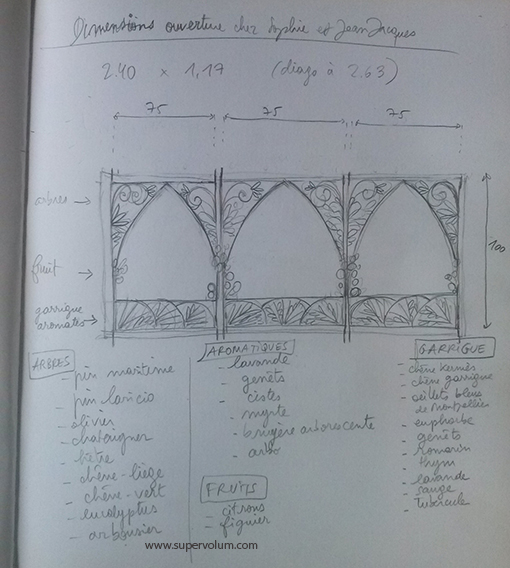 Dimensions ouverture chez Sophie et Jean Jacques
2.40 x 1,17 (diago à 2.63)
75 75 75
arbres
fruit
garrigue
aromates
100
ARBRES
- pin maritime
- pin laricio
- olivier
- chataigner
- hêtre
- chêne-liège
- chêne-vert
- eucalyptus
- arbousier
AROMATIQUES
- lavande
- genêts
- cistes
- myrte
- bruyère arborescente
- arbo
FRUITS
- citrons
- figuier
GARRIGUE
- chêne kermès
- chêne garrigue
- oeillets bleus
de Montpellier
- euphorbe
- genêts
- romarin
- thym
- lavande
- sauge
- Tubercule
www.supervolum.com